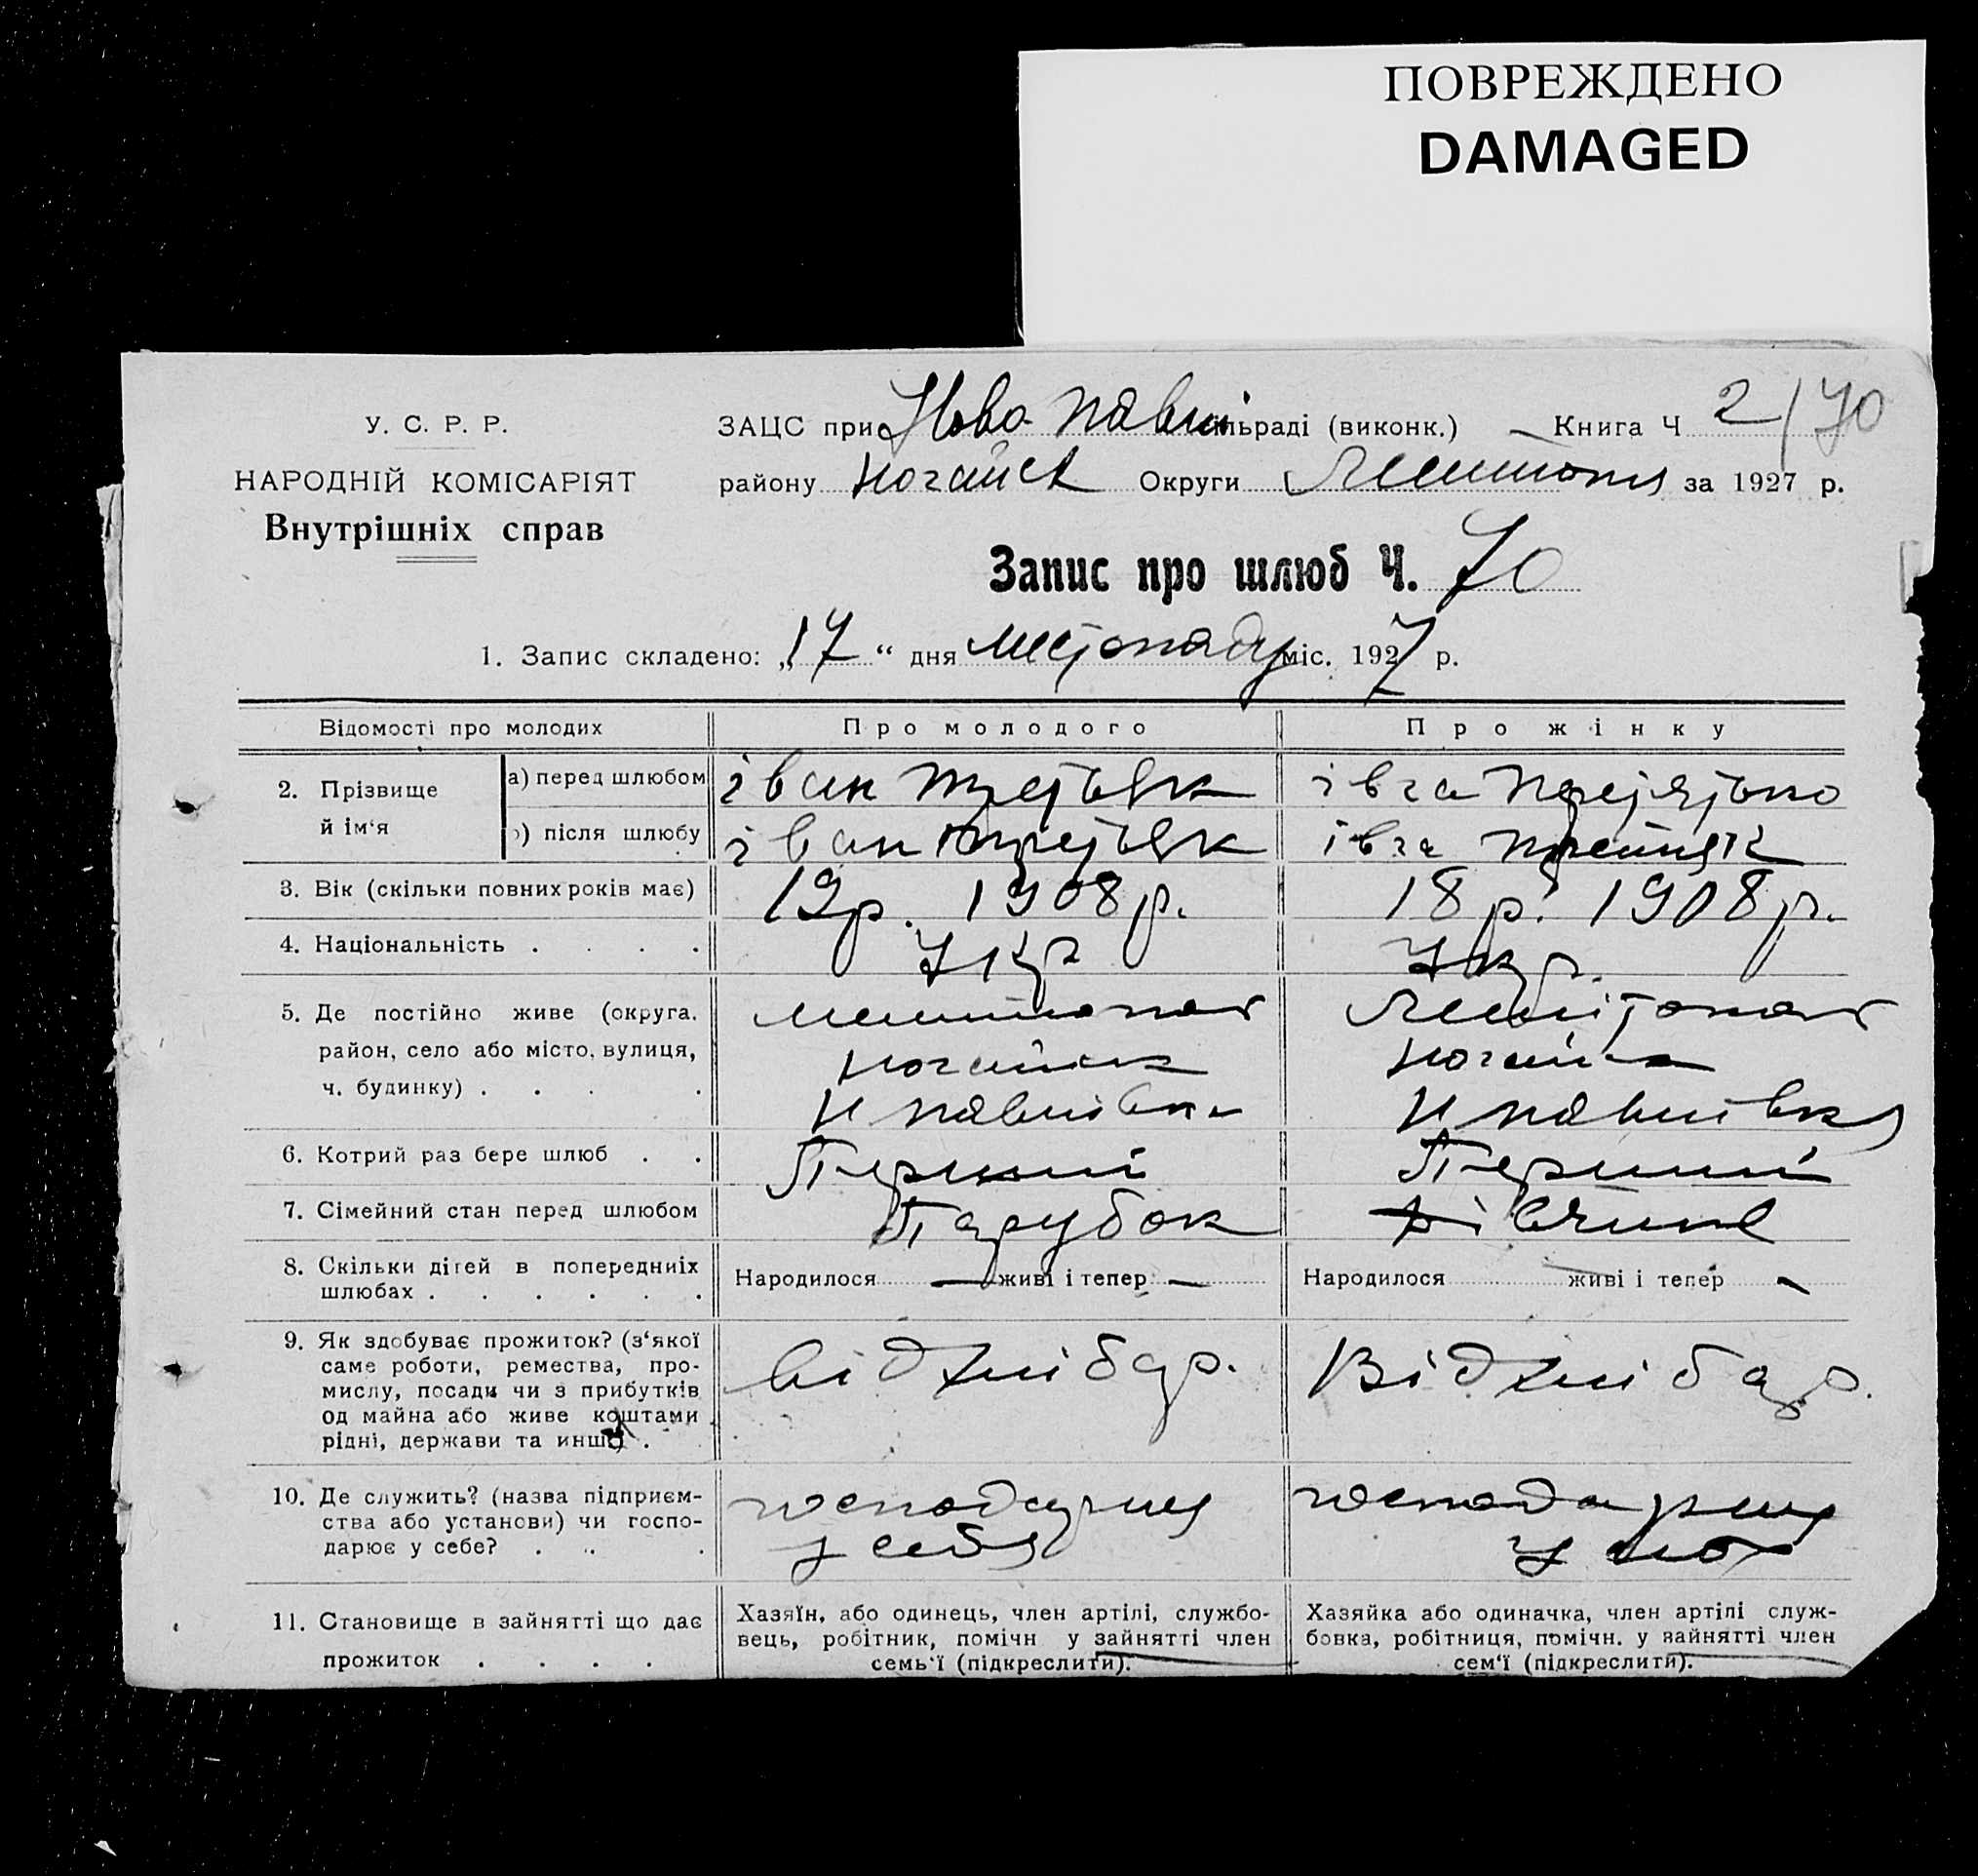 ПОВРЕЖДЕНО
DAMAGED
У. С. Р. Р.
НАРОДНІЙ КОМІСАРІЯТ
Внутрішніх справ
ЗАЦС при Ново Павлі сільраді (виконк.) — Книга Ч 2/70
району Ногайск Округи за 1927 р.
Запис про шлюб Ч. 70
1. Запис складено: „17“ дня листопаду міс. 1927 р.
Відомості про молодих Про молодого Про жінку
2. Прізвище й ім‘я
а) перед шлюбом іван Третьяк івга
б) після шлюбу іван Третьяк івга Третяк
3. Вік (скільки повних років має) 19 р. 1908 р. 18 р. 1908 р.
4. Національність . . . . Укр Укр.
5. Де постійно живе (округа, Мелитопол Мелітопол
район, село або місто, вулиця, Ногайск Ногайск
ч. будинку) . . . . Н павлівка Н павлівка
6. Котрий раз бере шлюб . . Перший Перший
7. Сімейний стан перед шлюбом Парубок дівчина
8. Скільки дітей в попередніх
шлюбах . . . . . . Народилося — живі і тепер — Народилося живі і тепер —
9. Як здобуває прожиток? (з‘якої
саме роботи, ремества, про-
мислу, посади чи з прибутків
од майна або живе коштами
рідні, держави та инше) . .
від хлібар. Від хлібар.
10. Де служить? (назва підприєм-
ства або установи) чи госпо-
дарює у себе? . . .
господарує господарує
у себя у себя
11. Становище в зайнятті що дає
прожиток . . . .
Хазяїн, або одинець, член артілі, службо-
вець, робітник, помічн у зайнятті член
семь‘ї (підкреслити).
Хазяйка або одиначка, член артілі служ-
бовка, робітниця, помічн. у зайнятті член
сем‘ї (підкреслити).